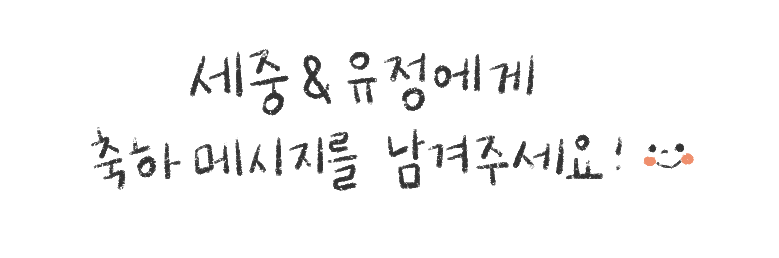 세중&유정에게
축하 메시지를 남겨주세요!